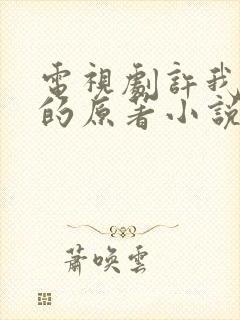 電視劇許我
的原著小說
蕭喚雲